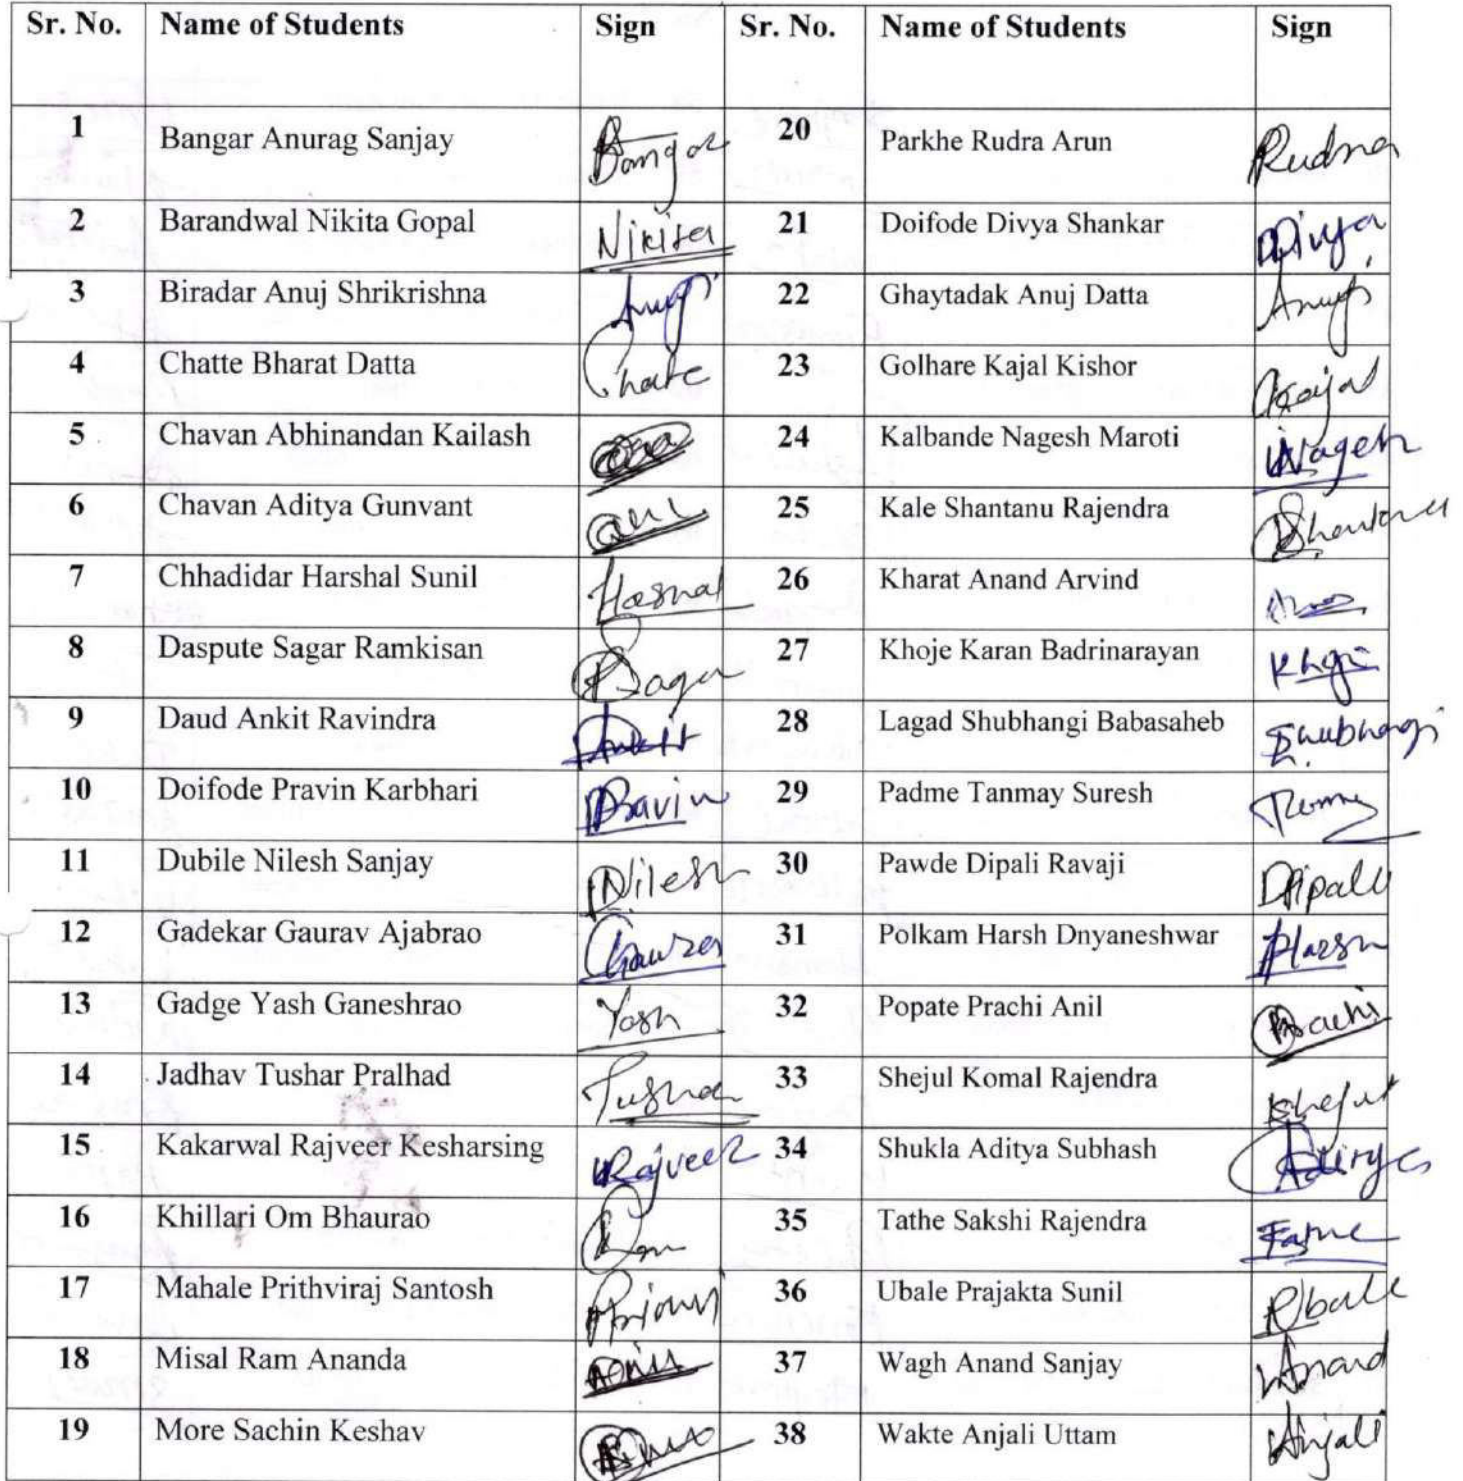 Sr. No. Name of Students Sign Sr. No. Name of Students Sign
1 Bangar Anurag Sanjay Bangar 20 Parkhe Rudra Arun Rudra
2 Barandwal Nikita Gopal Nikita 21 Doifode Divya Shankar Divya
3 Biradar Anuj Shrikrishna Anuj 22 Ghaytadak Anuj Datta Anuj
4 Chatte Bharat Datta Chate 23 Golhare Kajal Kishor Kajal
5 Chavan Abhinandan Kailash 24 Kalbande Nagesh Maroti Nagesh
6 Chavan Aditya Gunvant 25 Kale Shantanu Rajendra Shantanu
7 Chhadidar Harshal Sunil 26 Kharat Anand Arvind
8 Daspute Sagar Ramkisan Sagar 27 Khoje Karan Badrinarayan
9 Daud Ankit Ravindra Ankit 28 Lagad Shubhangi Babasaheb Shubhangi
10 Doifode Pravin Karbhari 29 Padme Tanmay Suresh
11 Dubile Nilesh Sanjay Nilesh 30 Pawde Dipali Ravaji Dipali
12 Gadekar Gaurav Ajabrao 31 Polkam Harsh Dnyaneshwar Harsh
13 Gadge Yash Ganeshrao Yash 32 Popate Prachi Anil Prachi
14 Jadhav Tushar Pralhad Tushar 33 Shejul Komal Rajendra Shejul
15 Kakarwal Rajveer Kesharsing Rajveer 34 Shukla Aditya Subhash Aditya
16 Khillari Om Bhaurao Om 35 Tathe Sakshi Rajendra
17 Mahale Prithviraj Santosh 36 Ubale Prajakta Sunil Ubale
18 Misal Ram Ananda 37 Wagh Anand Sanjay Anand
19 More Sachin Keshav 38 Wakte Anjali Uttam Anjali